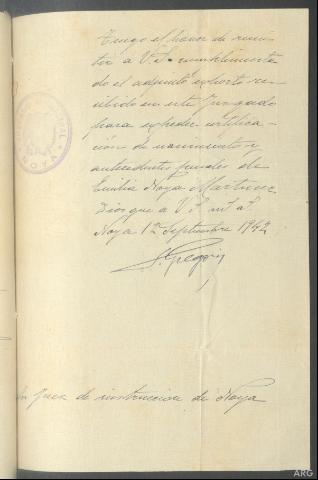 Tengo el honor de remi-
tir a V.S. cumplimenta-
do el adjunto exhorto re-
cibido en este Juzgado
para expedir certifica-
ción de nacimiento y
antecedentes penales de
Emilia Noya Martinez
Dios gue a V.S. ms as
Noya 1º Septiembre 1942
S. Gregori
NOYA
Sr Juez de instruccion de Noya
ARG